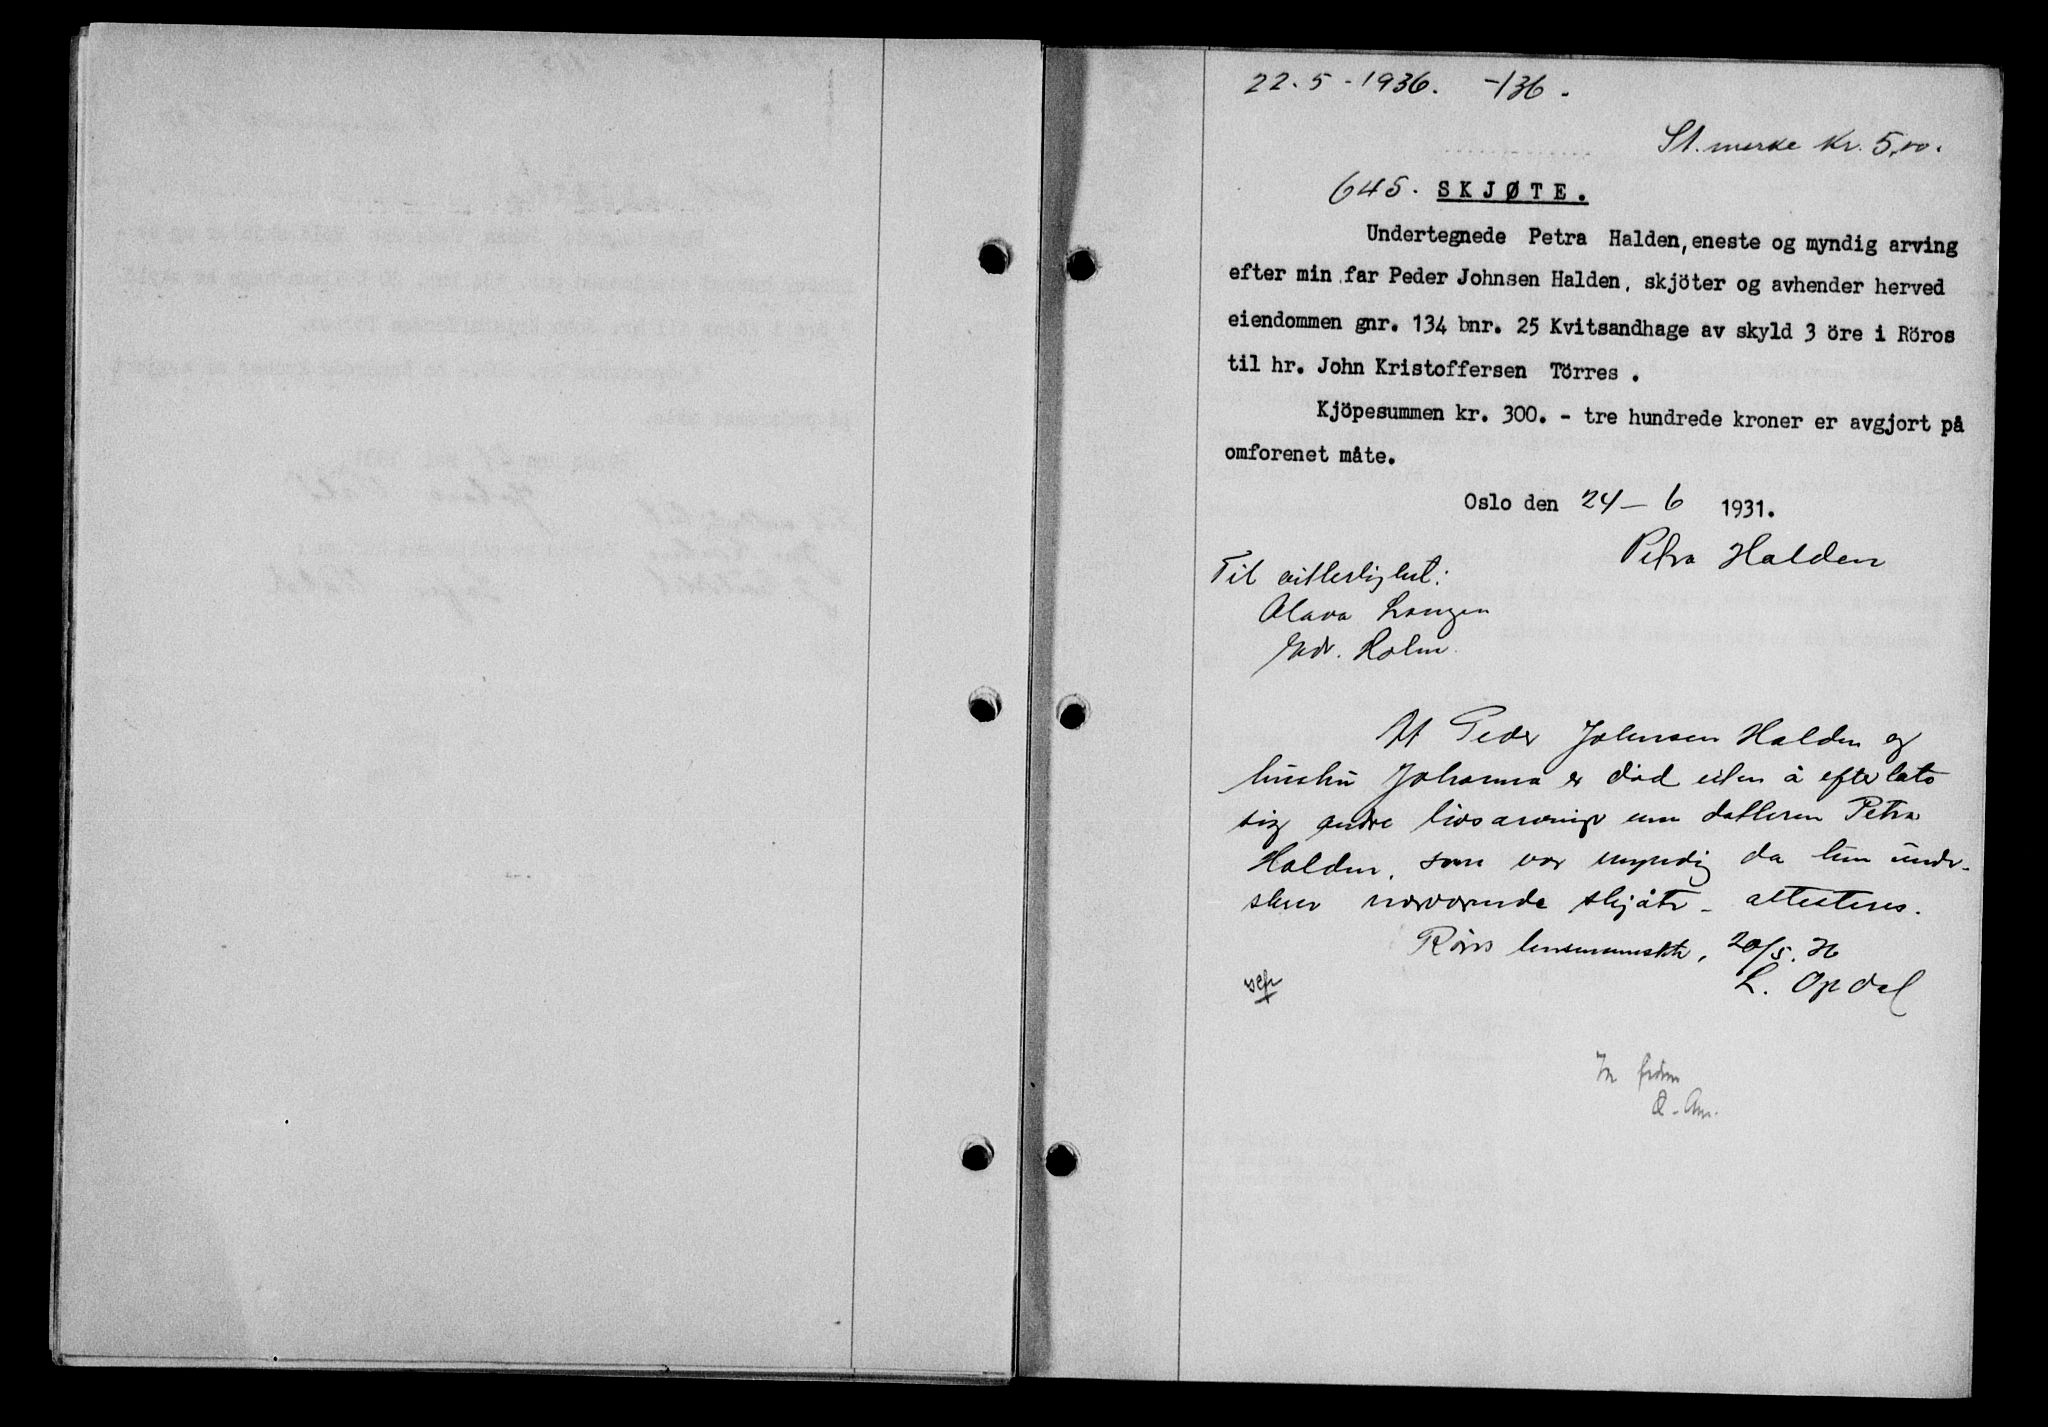 22.5-1936. -136.
St. merke kr. 5,00.
645. SKJØTE.
Undertegnede Petra Halden, eneste og myndig arving
efter min far Peder Johnsen Halden, skjöter og avhender herved
eiendommen gnr. 134 bnr. 25 Kvitsandhage av skyld 3 öre i Röros
til hr. John Kristoffersen Törres .
Kjöpesummen kr. 300. - tre hundrede kroner er avgjort på
omforenet måte.
Oslo den 24-6 1931.
Petra Halden
Til vitterlighet:
Olava Langen
Holm.
At Peder Johnsen Halden og
hustru Johanna er død uten å efterlate
sig andre livsarvinger enn datteren Petra
Halden, som var myndig da hun under-
skrev nærværende skjøte - attesteres.
Røros lensmannsktr, 20/5.36
L. Opdal